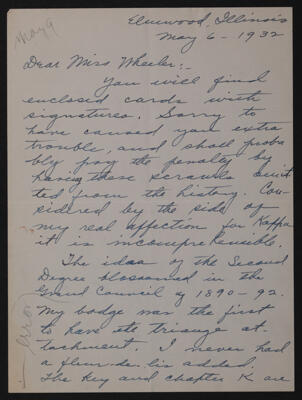 May 9
Elmwood, Illinois
May 6 - 1932
Dear Miss Wheeler;-
You will find
enclosed cards with
signatures. Sorry to
have caused you extra
trouble, and shall proba
bly pay the penalty by
having these scrawls omit
ted from the history. Con
sidered by the side of
my real affection for Kappa
it is incomprehensible.
The idea of the Second
Degree blossomed in the
Grand Council of 1890-92.
My badge was the first
to have the triangle at
tachment. I never had
a fleur-de-lis added.
The Key and chapter K are
error